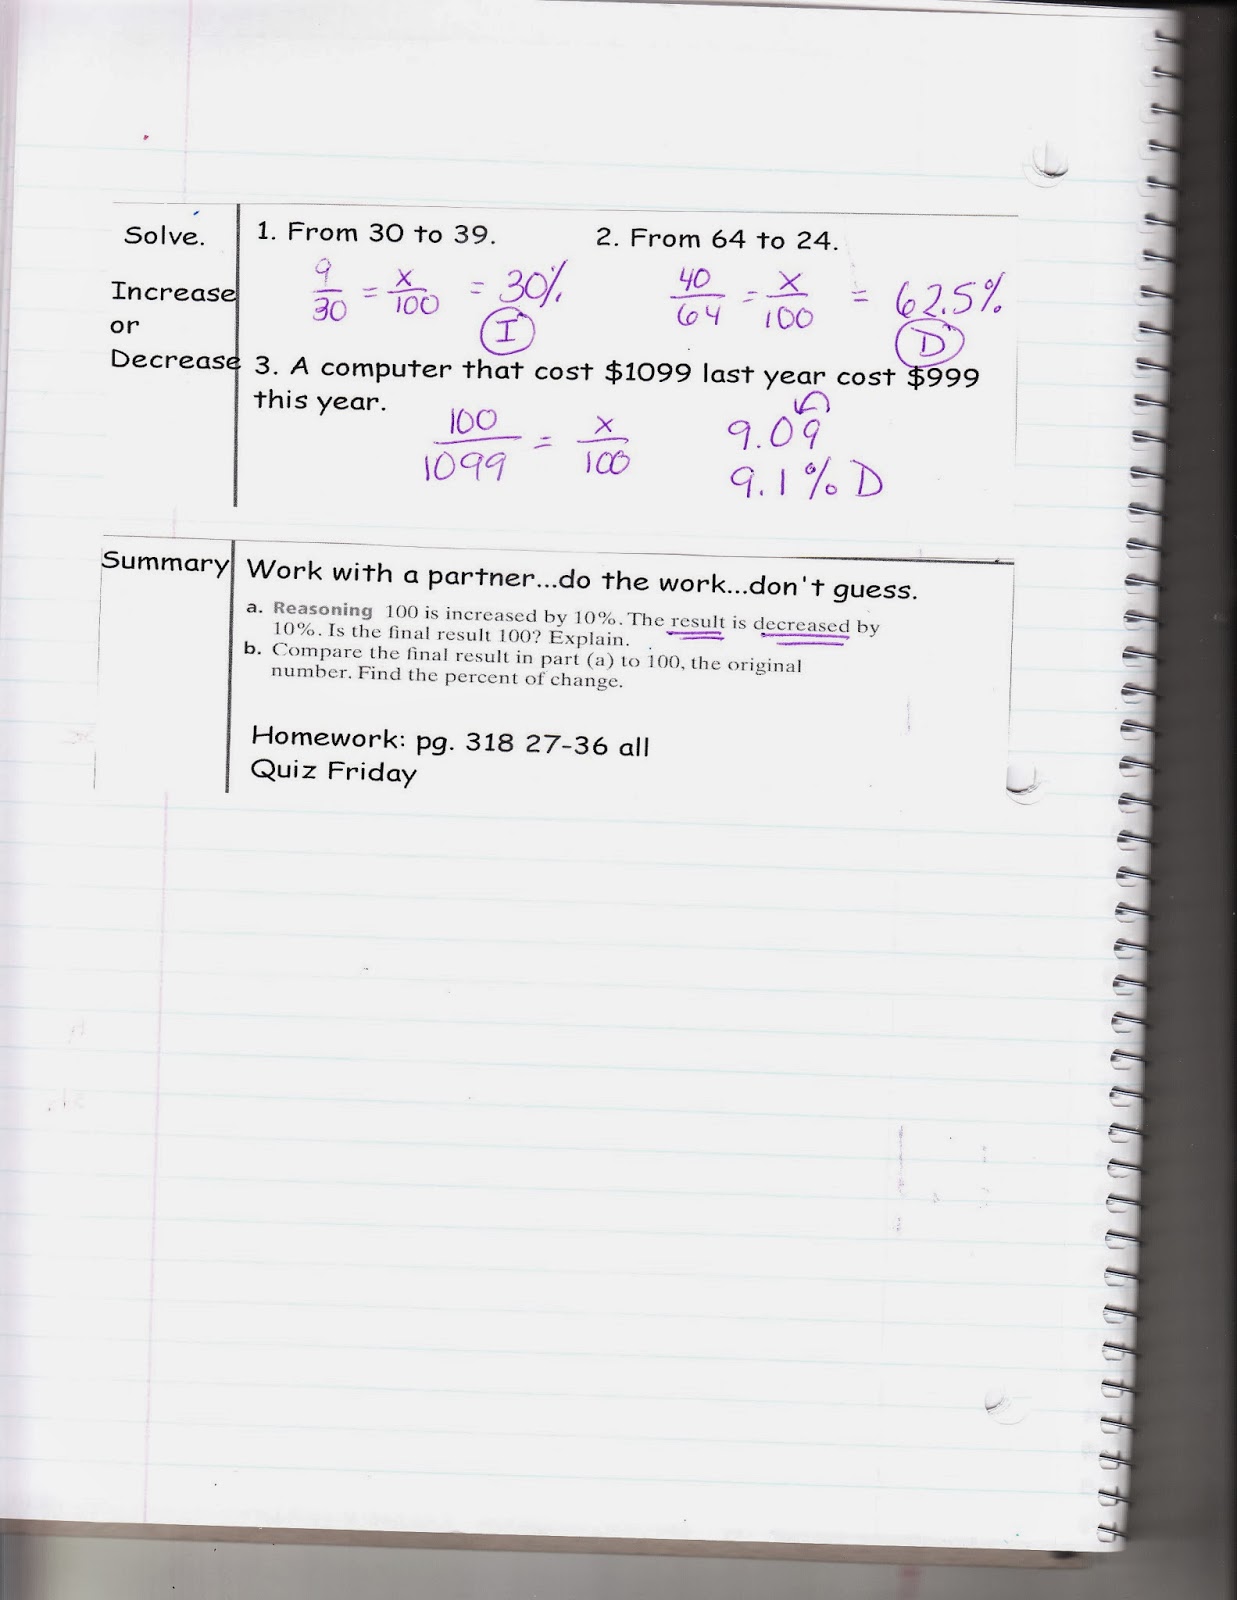 Solve.
Increase
or
Decrease
1. From 30 to 39.
9/30 = x/100 = 30%
I
2. From 64 to 24.
40/64 = x/100 = 62.5%
D
3. A computer that cost $1099 last year cost $999
this year.
100/1099 = x/100
9.09
9.1% D
Summary
Work with a partner...do the work...don't guess.
a. Reasoning 100 is increased by 10%. The result is decreased by
10%. Is the final result 100? Explain.
b. Compare the final result in part (a) to 100, the original
number. Find the percent of change.
Homework: pg. 318 27-36 all
Quiz Friday